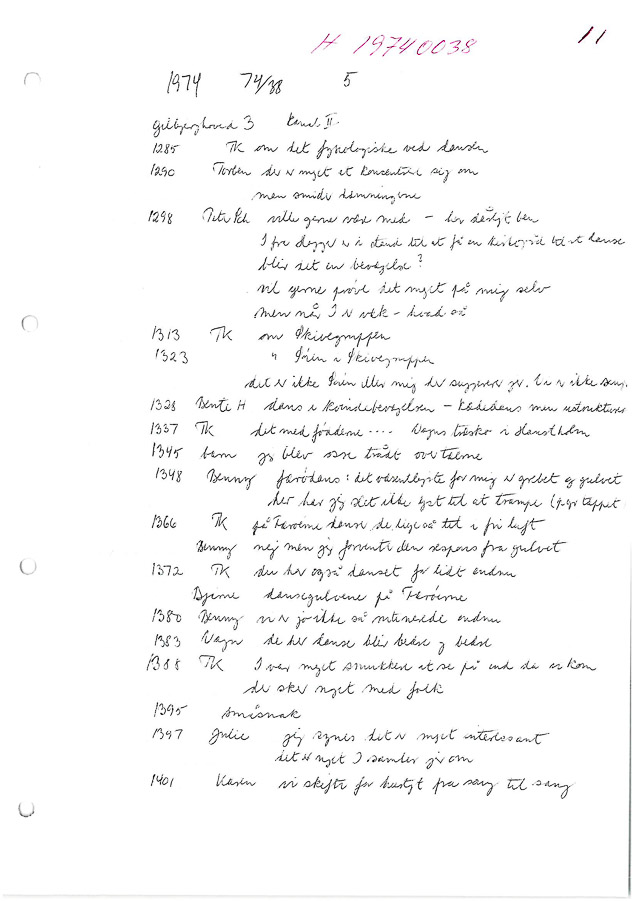 H 19740038
11
1974 74/38 5
Gilbjerghoved 3 Kanal II
1285 TK om det fysiologiske ved dansen
1290 Torben der er meget at koncentrere sig om
men smide hæmningerne
1298 ville gerne være med – har dårligt ben
I fra Slagger er i stand til at få en til at danse
blir det en bevægelse?
vil gerne prøve det meget på mig selv
men når I er væk – hvad så
1313 TK om Skivegruppen
1323 " i Skivegruppen
det er ikke eller mig der suggererer jer.
1328 Bente H dans i kvindebevægelsen – Kædedans men
1337 TK det med fødderne .... Vagns træsko i Hanstholm
1345 barn jeg blev osse trådt over tæerne
1348 Benny færødans: det væsentligste for mig er grebet og gulvet
her har jeg slet ikke lyst til at trampe (p.gr. tæppet
1366 TK på Færøerne danser de lige så tit i fri luft
Benny nej men jeg forventer den respons fra gulvet
1372 TK du har også danset for lidt endnu
Bjarne dansegulvene på Færøerne
1380 Benny vi er jo ikke så rutinerede endnu
1383 Vagn de her danse blir bedre og bedre
1388 TK I var meget smukkere at se på end da vi kom
der sker noget med folk
1395 småsnak
1397 Julie jeg synes det er meget interessant
det er noget I samler jer om
1401 Karen vi skifter for hurtigt fra sang til sang